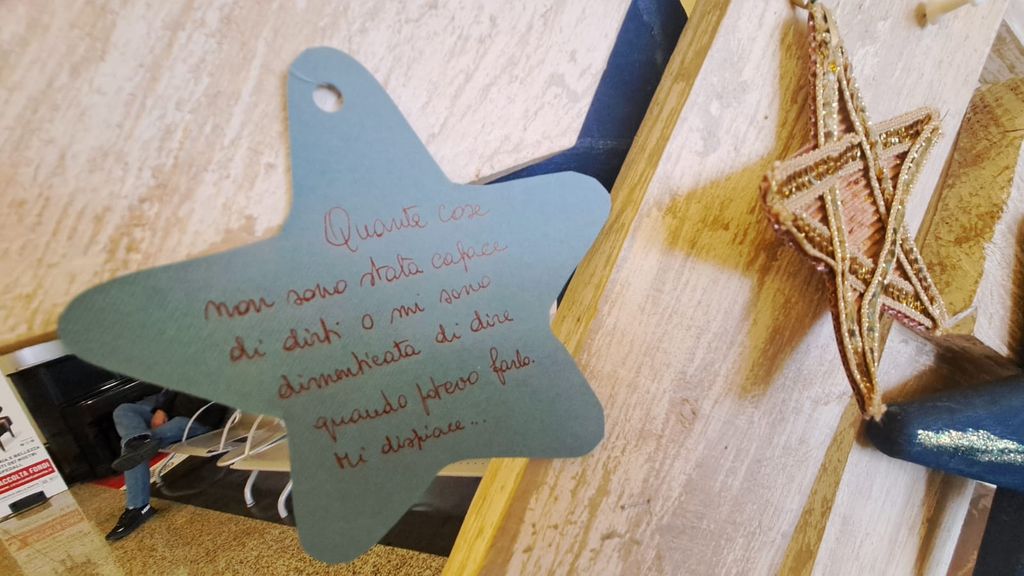 Quante cose
non sono stata capace
di dirti o mi sono
dimenticata di dire
quando potevo farlo.
Mi dispiace...
RACCOLTA FONDI